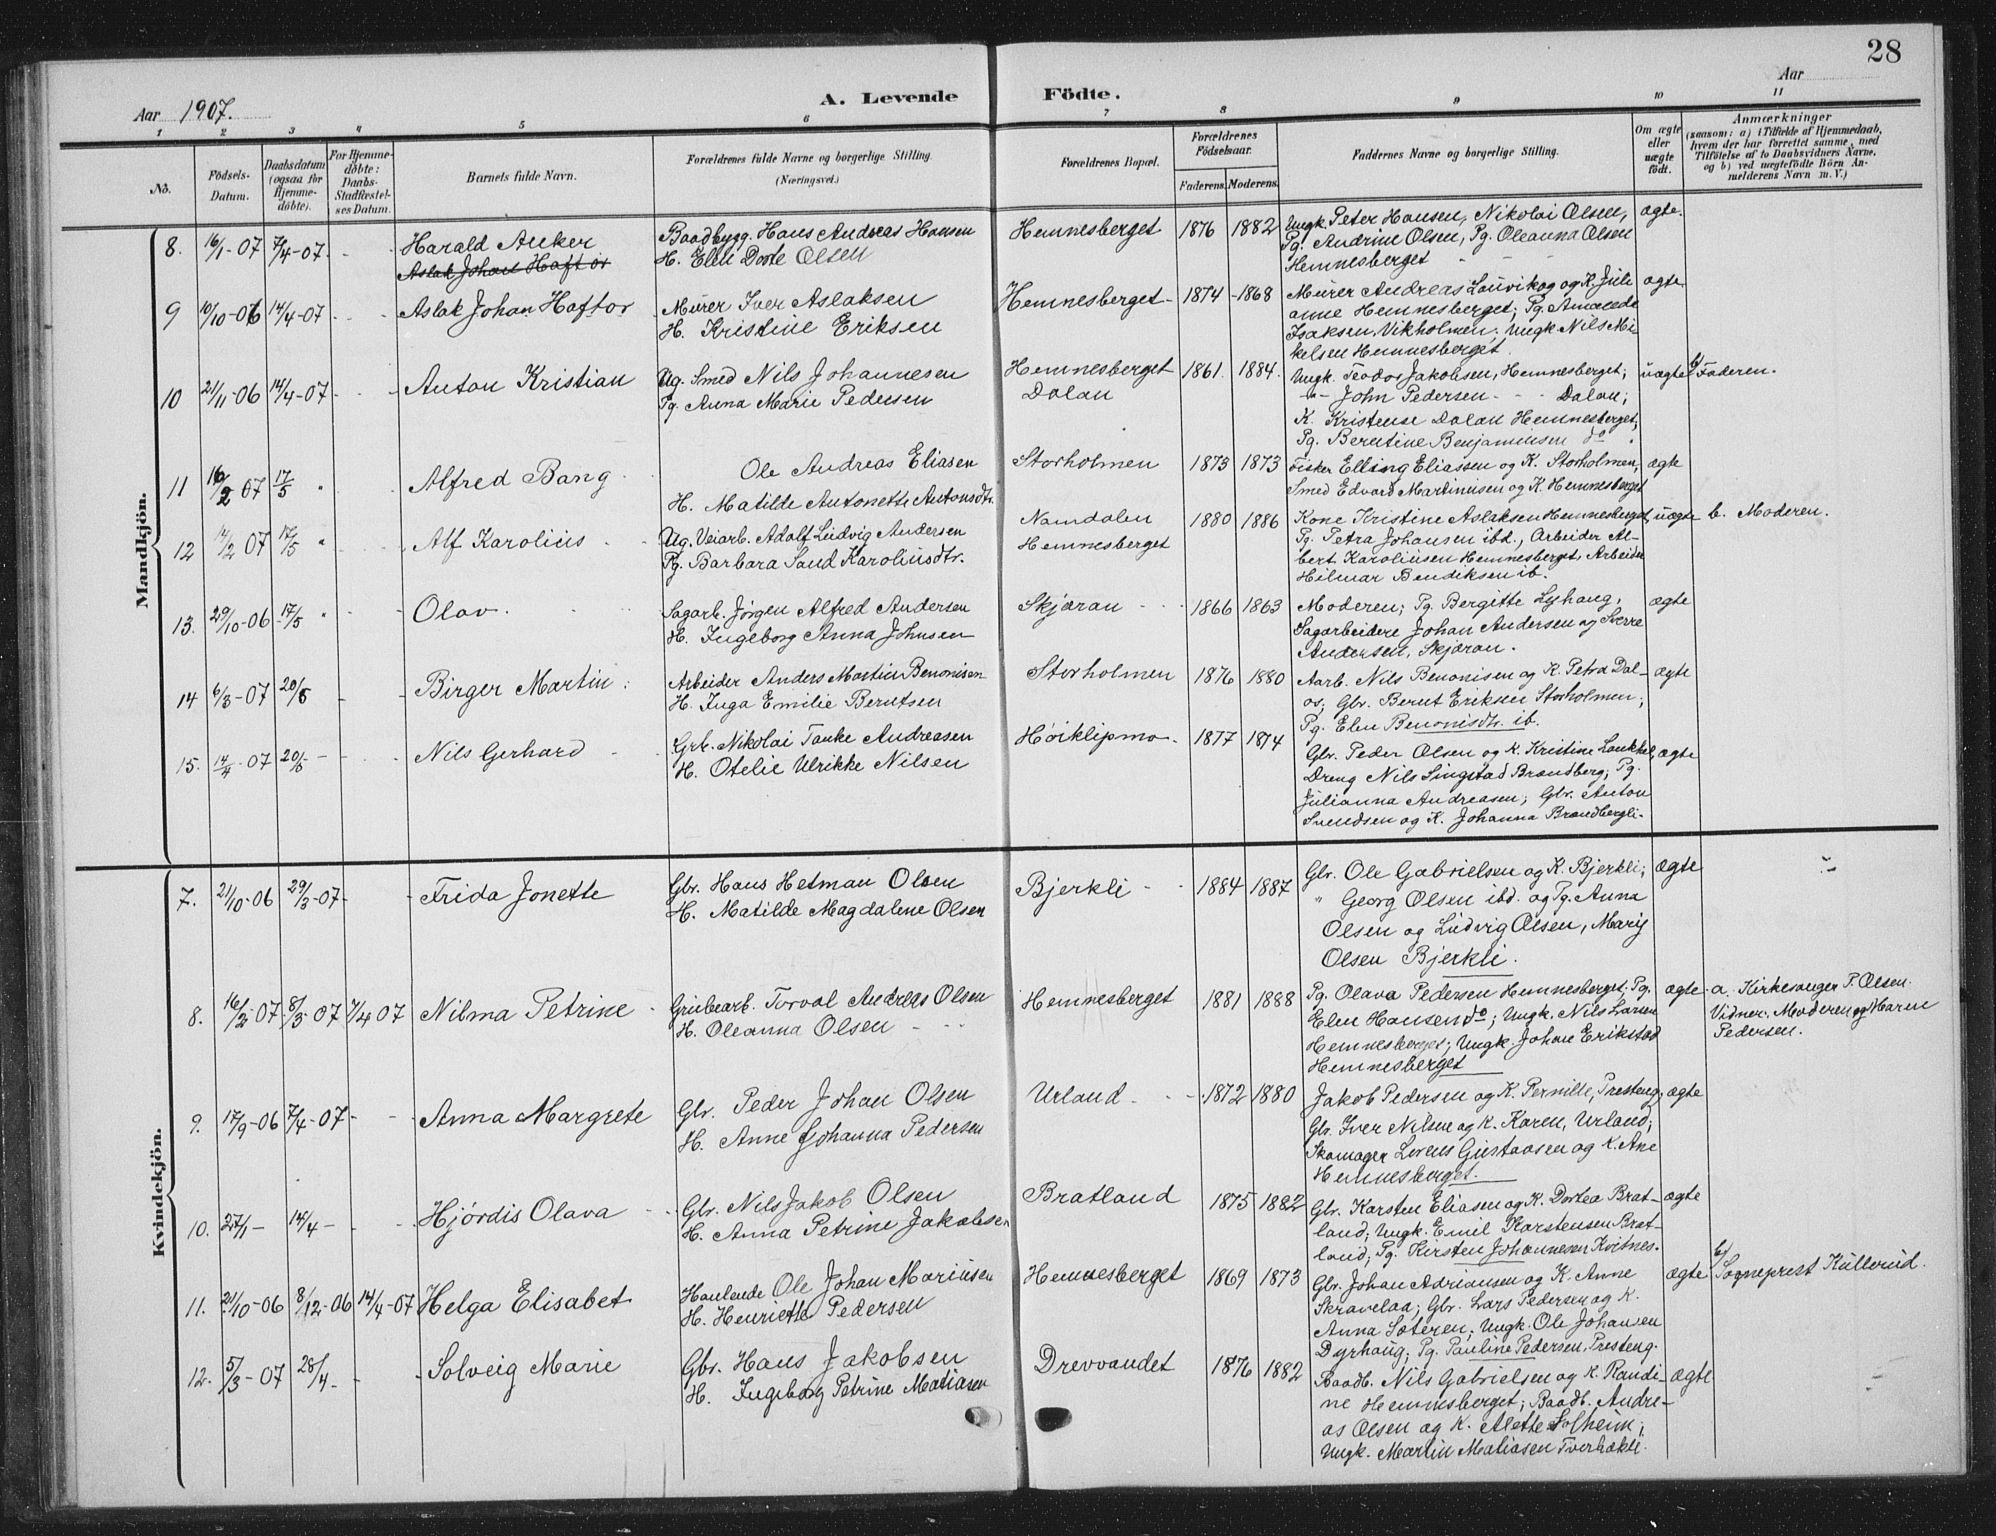 28
Aar 1907.
A. Levende Födte.
Aar
1 2 3 4 5 6 7 8 9 10 11
No.
Födsels-Datum.
Daabsdatum (ogsaa for Hjemme-døbte).
For Hjemme-døbte: Daabs-Stadfæstel-ses Datum.
Barnets fulde Navn.
Forældrenes fulde Navne og borgerlige Stilling.
(Næringsvei.)
Forældrenes Bopæl.
Forældrenes Födselsaar.
Faderens. Moderens.
Faddernes Navne og borgerlige Stilling.
Om ægte eller uægte födt.
Anmærkninger
(saasom: a) i Tilfælde af Hjemmedaab,
hvem der har forrettet samme, med
Tilföielse af to Daabsvidners Navne,
og b) ved uægtefödte Börn An-
melderens Navn m. V.)
Mandkjön.
8. 16/1-07 7/4-07 Harald Anker Baadbygg. Hans Andreas Hansen Hemnesberget 1876 1882 Ungk. Peter Hansen, Nikolai Olsen, ægte.
Aslak Johan Haftor H. Elen Dorte Olsen Pg. Andrine Olsen, Pg. Oleanna Olsen
Hemnesberget
9 10/10-06 14/4-07 Aslak Johan Haftor Murer Iver Aslaksen Hemnesberget 1874 1868 Murer Andreas Louvikog og K. Juli ægte
H. Kristine Eriksen anne Hemnesberget; Pg. Amanda
Isaksen, Vikholmen; Ungk. Nils Mi-
kelsen Hemnesberget.
10 21/11-06 14/4-07 Anton Kristian Ug. Smed Nils Johannesen Hemnesberget 1861. 1884. Ungk. Teodor Jakobsen, Hemnesberget; uægte b/ Faderen.
Pg. Anna Marie Pedersen Dalan John Pedersen - - Dalan;
K. Kristense Dalan Hemnesberget;
Pg. Berntine Benjaminsen do.
11 16/2 07 17/5 " Alfred Bang Ole Andreas Eliasen Storholmen 1873 1873 Fisker Elling Eliassen og K. Storholmen, ægte
H. Matilde Antonette Antonsdtr. Smed Edvard Martinusen og K. Hemnesberget
12 14/2 07 17/5 " Alf Karolius Ug. Veiarb. Adolf Ludvig Andersen Namdalen 1880 1886 Kone Kristine Aslaksen Hemnesberget uægte b. Moderen.
Pg. Barbara Sand Karoliusdtr. Hemnesberget Pg. Petra Johansen ibd., Arbeider Al-
bert Karoliusen Hemnesberget, Arbeider
Hilmar Bendiksen ib.
13. 29/10-06 17/5 " Olav. Sagarb. Jørgen Alfred Andersen Skjæran 1866 1863 Moderen; Pg. Bergitte Lyhaug, ægte
H. Ingeborg Anna Johnsen Sagarbeidere Johan Andersen og Sverre
Andersen, Skjæran.
14 6/3-07 20/5 Birger Martin Arbeider Anders Martin Benonisen Storholmen 1876 1880 Aarb. Nils Benonisen og K. Petra Dal- ægte
H. Inga Emilie Berntsen os; Gbr. Bernt Eriksen Storholmen;
Pg. Elen Benonisdtr. ib.
15. 14/4-07 20/5 Nils Gerhard Grb. Nikolai Tanke Andreasen Høiklipmo 1877 1874 Gbr. Peder Olsen og K. Kristine Laukhel, ægte
H. Otelie Ulrikke Nilsen Dreng Nils Singstad Brandberg; Pg.
Julianna Andreasen; Gbr. Anton
Svendsen og K. Johanna Brandbergli-
Kvindekjön.
7. 21/10-06 29/3-07 Frida Jonette Gbr. Hans Hetman Olsen Bjerkli 1884 1887 Gbr. Ole Gabrielsen og K. Bjerkli; ægte
H. Matilde Magdalene Olsen " Georg Olsen ibd. og Pg. Anna
Olsen og Ludvig Olsen, Marij
Olsen Bjerkli.
8. 16/2-07 8/3-07 7/4 07 Nilma Petrine Grubearb. Torval Andreas Olsen Hemnesberget 1881 1888 Pg. Olava Pedersen Hemnesberget; Pg. ægte a. Kirkesanger P. Olsen.
H. Oleanna Olsen Elen Hansen do; Ungk. Nils Larsen Vidner: Moderen og Maren
Hemnesberget; Ungk. Johan Erikstad Pedersen.
Hemnesberget
9. 17/9-06 7/4-07 Anna Margrete Gbr. Peder Johan Olsen Urland 1872 1880 Jakob Pedersen og K. Pernille, Presteng; ægte
H. Anne Johanna Pedersen Gbr. Iver Nilsen og K. Karen, Urland;
Skomager Lorens Gustavsen og K. Ane
Hemnesberget.
10. 27/1- 14/4- Hjørdis Olava Gbr. Nils Jakob Olsen Bratland 1875 1882 Gbr. Karsten Eliasen og K. Dortea Brat- ægte
H. Anna Petrine Jakobsen land; Ungk. Emil Karstensen Brat-
land; Pg. Kirsten Johannesen Kvitnes.
11. 20/10-06 8/12-06 14/4-07 Helga Elisabet Handlende Ole Johan Mariusen Hemnesberget 1869 1873 Gbr. Johan Adriansen og K. Anne ægte b/ Sogneprest Kullerud.
H. Henriette Pedersen Skravelaa; Gbr. Lars Pedersen og K.
Anna Sæteren; Ungk. Ole Johansen
Dyrhaug; Pg. Pauline Pedersen, Presteng.
12. 5/3-07 28/4- Solveig Marie Gbr. Hans Jakobsen Drevvandet 1876 1882 Baadb. Nils Gabrielsen og K. Randi- ægte
H. Ingeborg Petrine Matiasen ne Hemnesberget; Baadb. Andre-
as Olsen og K. Alette Solheim;
Ungk. Martin Matiasen Tverbakk.